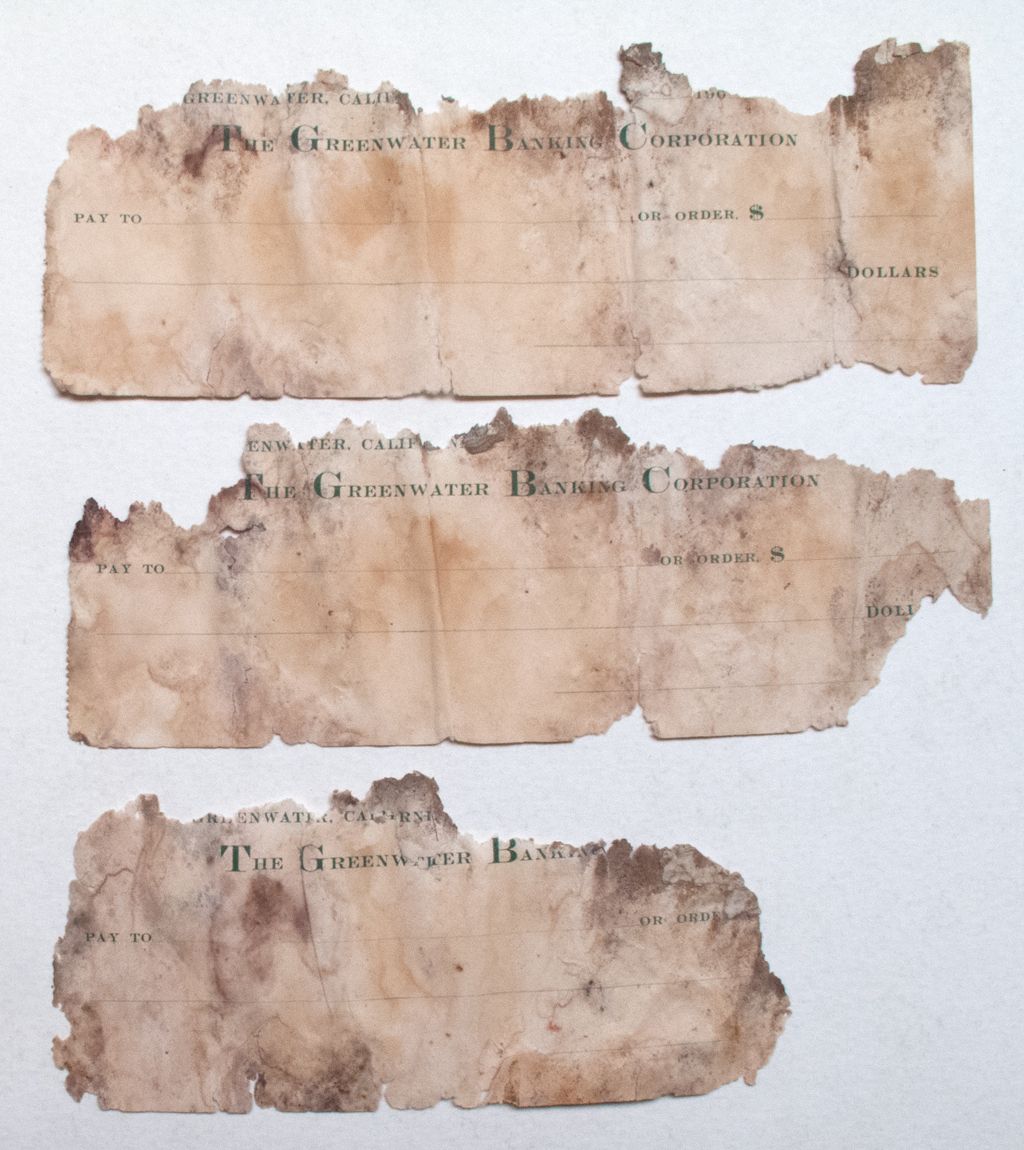 GREENWATER, CALIF 190
THE GREENWATER BANKING CORPORATION
PAY TO OR ORDER. $
DOLLARS
ENWATER, CALIF
THE GREENWATER BANKING CORPORATION
PAY TO OR ORDER. $
DOLL
GREENWATER, CALIFORNI
THE GREENWATER BANKING
PAY TO OR ORDE